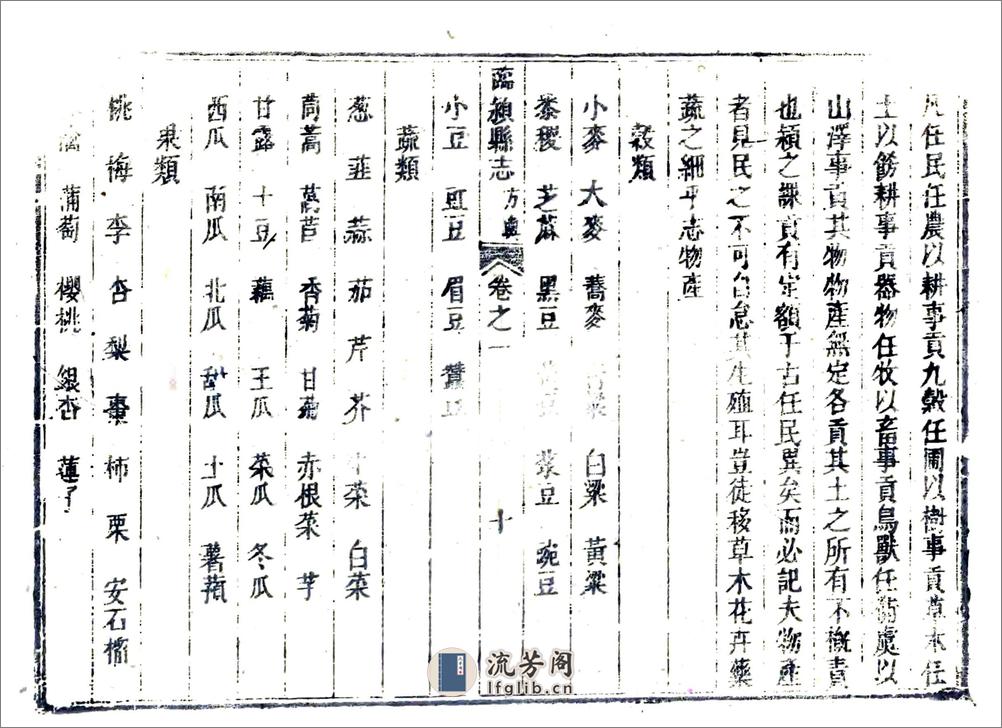 凡任民任農以耕事貢九穀任圃以樹事貢草木任
土以飭耕事貢器物任牧以畜事貢鳥獸任衡處以
山澤事貢其物物產無定各貢其土之所有不槪責
也潁之課貢有定額于古任民異矣而必記夫物產
者見民之不可自怠其生殖耳豈徒移草木花卉藥
蔬之細乎志物產
穀類
小麥 大麥 蕎麥 粱 白粱 黃粱
黍稷 芝蔴 黑豆 豆 菉豆 豌豆
臨潁縣志 方輿 卷之一 十
小豆 豇豆 眉豆 蠶豆
蔬類
葱 韭 蒜 茄 芹 芥 菜 白菜
茼蒿 萵苣 香菊 甘菊 赤根菜 芋
甘露 土豆 藕 王瓜 菜瓜 冬瓜
西瓜 南瓜 北瓜 甜瓜 土瓜 薯蕷
果類
桃 梅 李 杏 梨 棗 柿 栗 安石榴
蒲萄 櫻桃 銀杏 蓮子
流芳阁
lfglib.cn